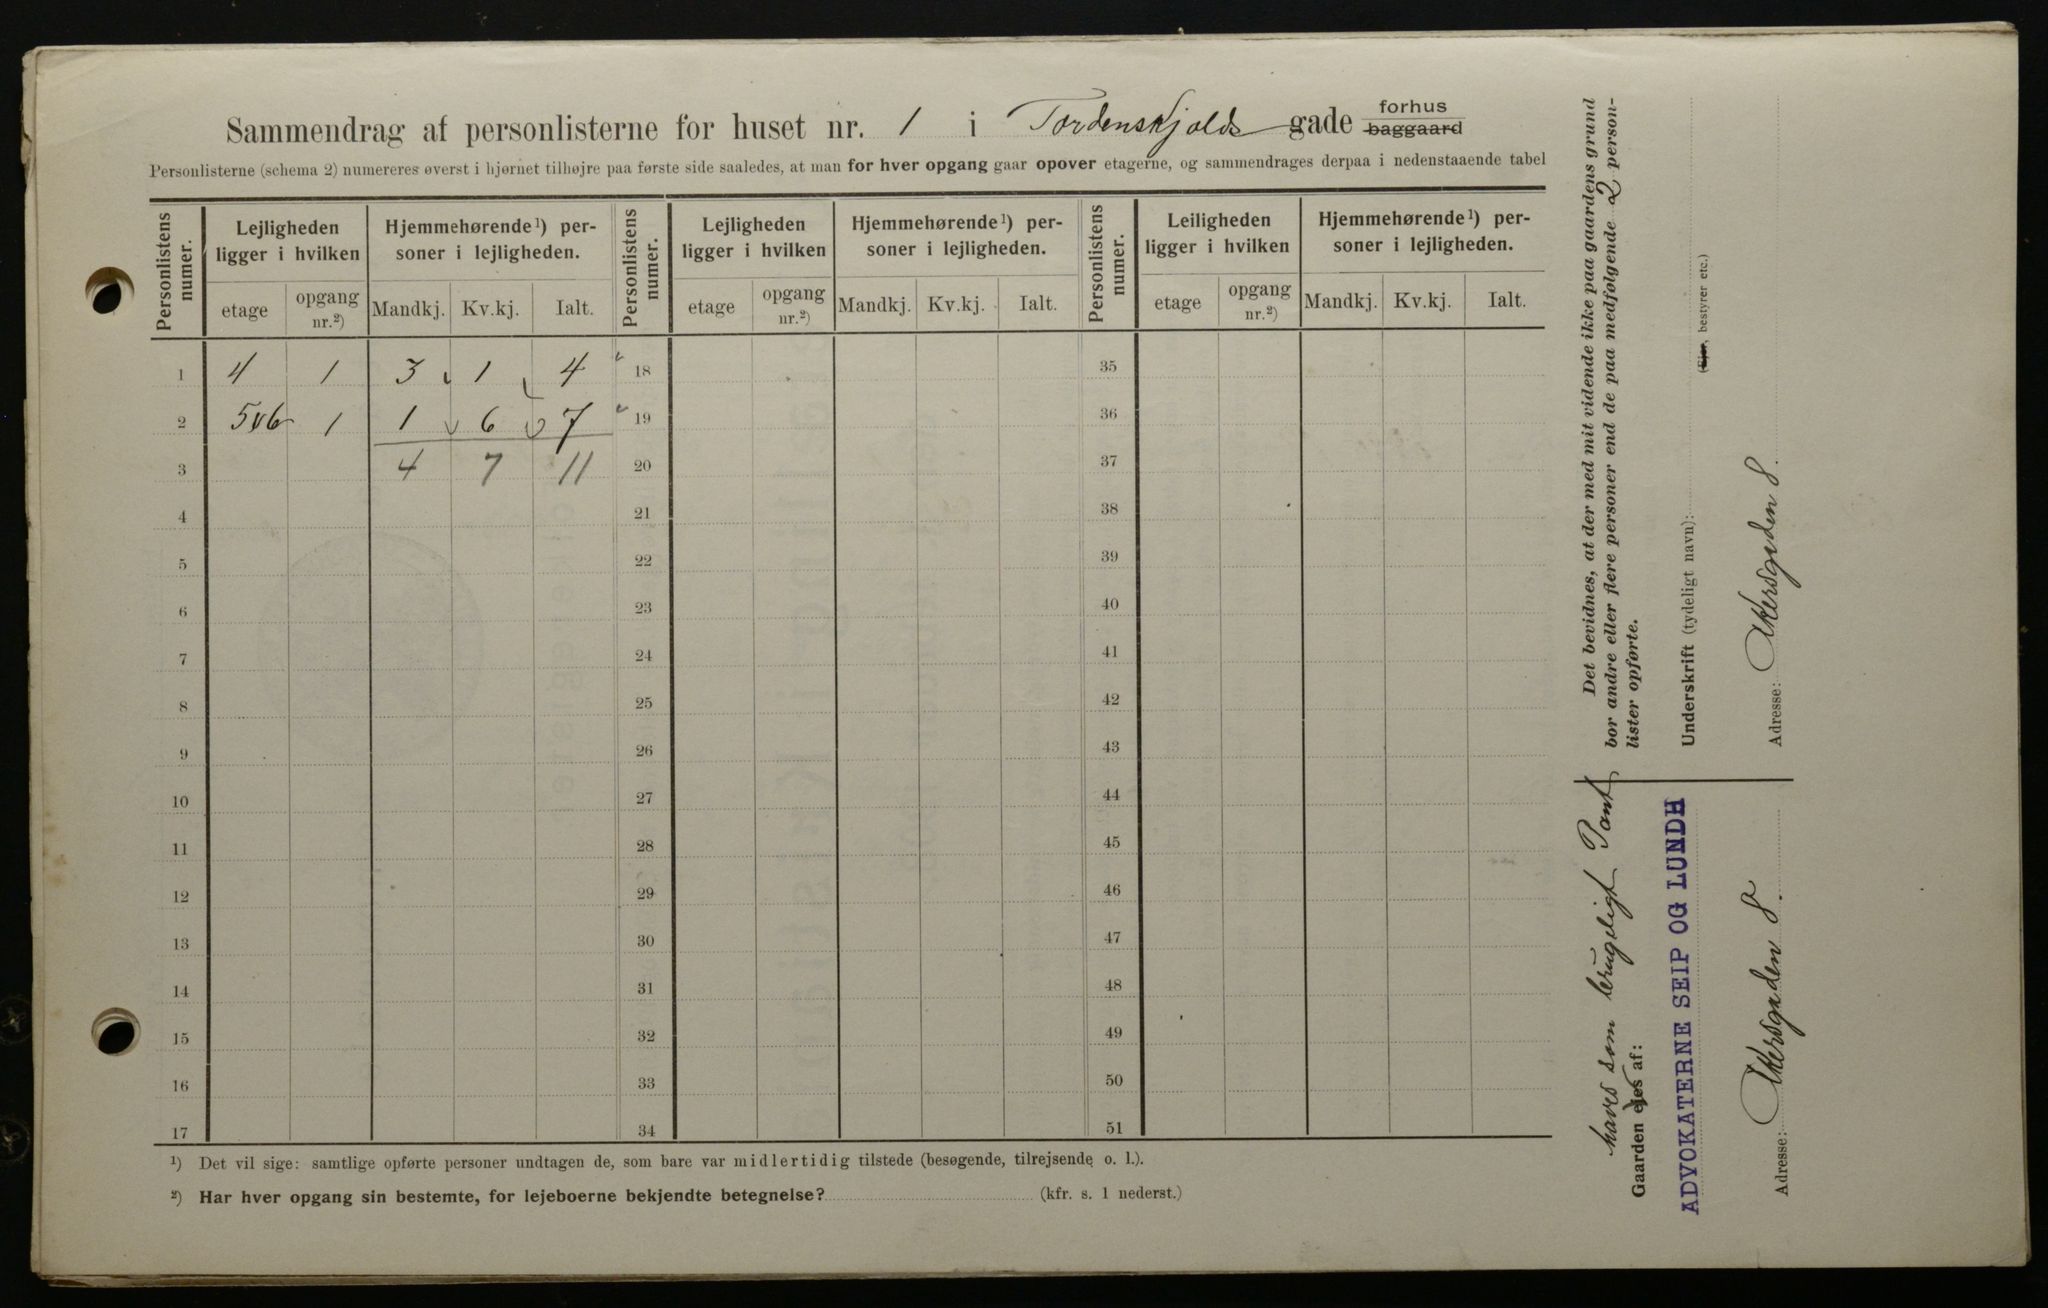 Sammendrag af personlisterne for huset nr. 1 i Tordenskjolds gade forhus baggaard
Personlisterne (schema 2) numereres øverst i hjørnet tilhøjre paa første side saaledes, at man for hver opgang gaar opover etagerne, og sammendrages derpaa i nedenstaaende tabel
Personlistens numer. Lejligheden ligger i hvilken Hjemmehørende¹) personer i lejligheden. Personlistens numer. Lejligheden ligger i hvilken Hjemmehørende¹) personer i lejligheden. Personlistens numer. Leiligheden ligger i hvilken Hjemmehørende¹) personer i lejligheden.
etage opgang nr.²) Mandkj. Kv.kj. Ialt. etage opgang nr.²) Mandkj. Kv.kj. Ialt. etage opgang nr.²) Mandkj. Kv.kj. Ialt.
1 4 1 3 1 4 18 35
2 5 v 6 1 1 6 7 19 36
3 4 7 11 20 37
4 21 38
5 22 39
6 23 40
7 24 41
8 25 42
9 26 43
10 27 44
11 28 45
12 29 46
13 30 47
14 31 48
15 32 49
16 33 50
17 34 51
¹) Det vil sige: samtlige opførte personer undtagen de, som bare var midlertidig tilstede (besøgende, tilrejsende o. l.).
²) Har hver opgang sin bestemte, for lejeboerne bekjendte betegnelse? (kfr. s. 1 nederst.)
Det bevidnes, at der med mit vidende ikke paa gaardens grund
bor andre eller flere personer end de paa medfølgende 2 person-
lister opførte.
Underskrift (tydeligt navn):
(Ejer, bestyrer etc.)
Adresse: Akersgaden 8.
haves som brugeligt Pant
Gaarden ejes af:
ADVOKATERNE SEIP OG LUNDH
Adresse: Akersgaden 8.